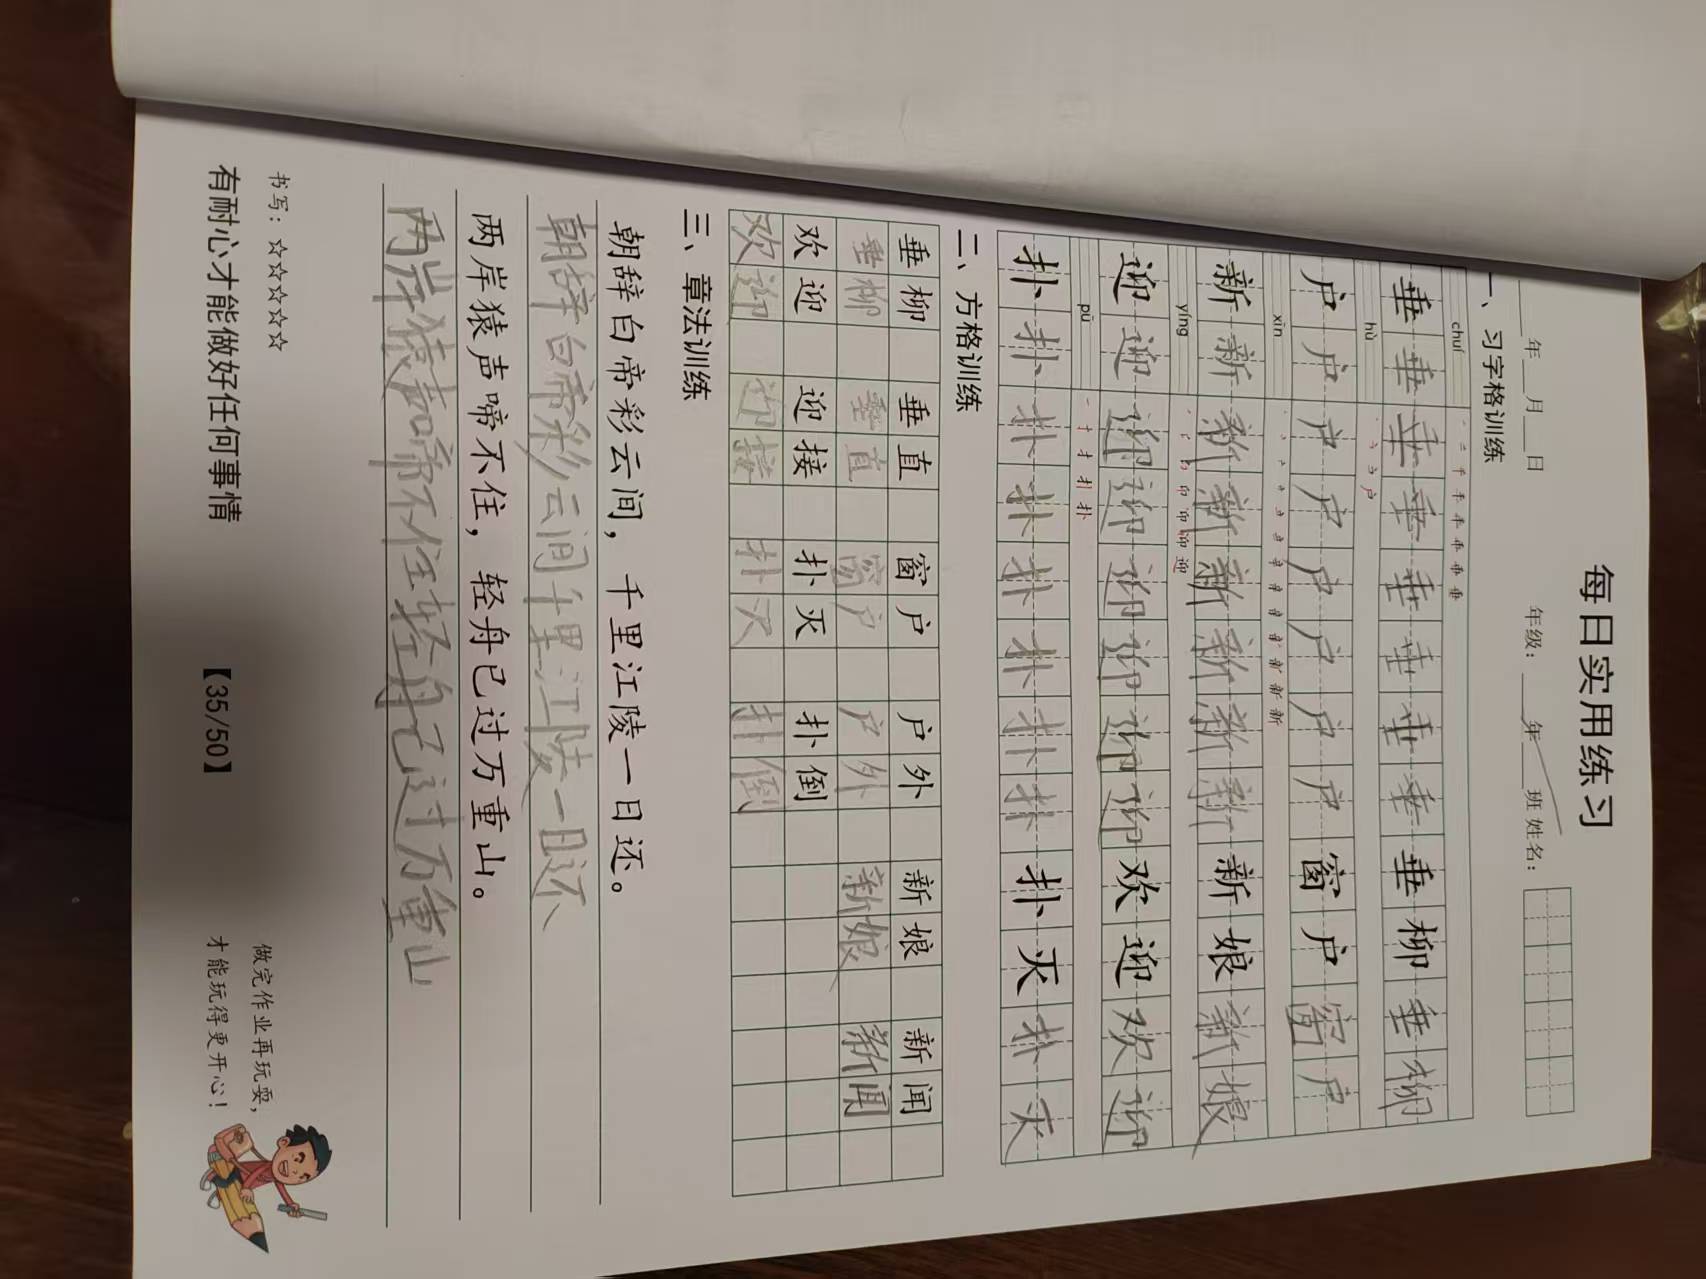 每日实用练习
____年___月___日 年级：____年____班 姓名：
一、习字格训练
chuí 一 二 千 壬 垂 垂 垂 垂
垂 垂 垂 垂 垂 垂 垂 垂 垂 柳 垂 柳
hù 丶 ㇇ ㇌ 户
户 户 户 户 户 户 户 户 窗 户 窗 户
xīn
新 新 新 新 新 新 新 新 新 娘 新 娘
yíng
迎 迎 迎 迎 迎 迎 迎 迎 欢 迎 欢 迎
pū 一 十 扌 扑 扑
扑 扑 扑 扑 扑 扑 扑 扑 扑 灭 扑 灭
二、方格训练
垂柳 垂直 窗户 户外 新娘 新闻
垂柳 垂直 窗户 户外 新娘 新闻
欢迎 迎接 扑灭 扑倒
欢迎 迎接 扑灭 扑倒
三、章法训练
朝辞白帝彩云间，千里江陵一日还。
朝辞白帝彩云间千里江陵一日还
两岸猿声啼不住，轻舟已过万重山。
两岸猿声啼不住轻舟已过万重山
书写：☆☆☆☆☆
有耐心才能做好任何事情
【35/50】
做完作业再玩耍，
才能玩得更开心！